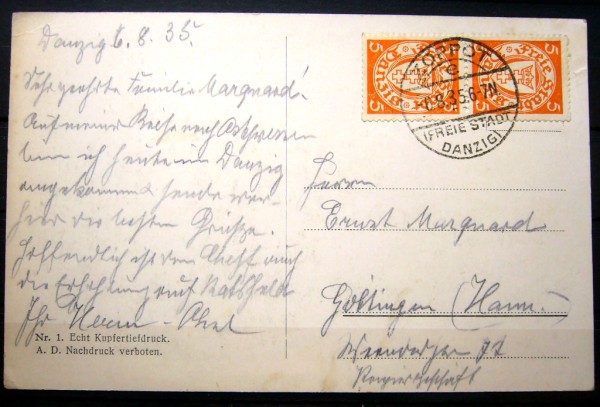 Danzig 6.8.35.
Sehr geehrte Familie Marquard!
Auf meiner Reise nach Ostpreussen
bin ich heute in Danzig
angekommen & sende von
hier die besten Grüsse.
Hoffentlich ist dem Chef auch
die Erholung auf
Ihr Herm.
Nr. 1. Echt Kupfertiefdruck.
A. D. Nachdruck verboten.
5 5 5 5
ZOPPOT
6-7N
(FREIE STADT
DANZIG)
Herrn
Ernst Marquard
Göttingen (Hann.)
Weender